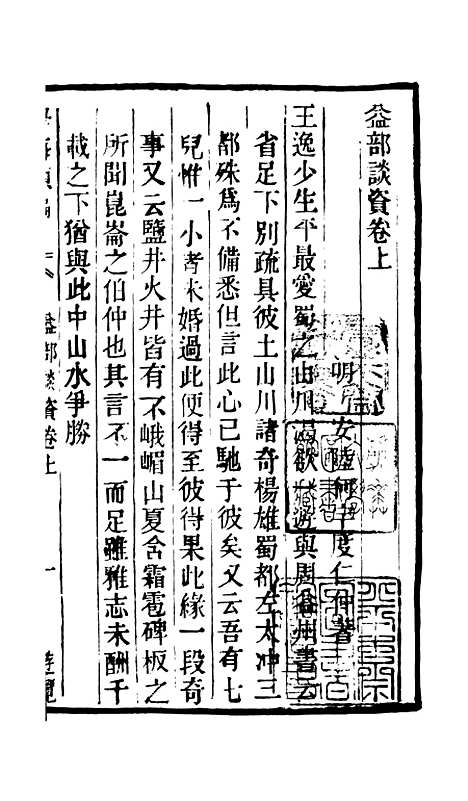 益部談資卷上
明 安陸何宇度仁仲著
王逸少生平最愛蜀之山川思欲一遊與周益州書云
省足下別疏具彼土山川諸奇楊雄蜀都左太冲三
都殊爲不備悉但言此心已馳于彼矣又云吾有七
兒惟一小者未婚過此便得至彼得果此緣一段奇
事又云鹽井火井皆有不峨嵋山夏含霜雹碑板之
所聞崑崙之伯仲也其言不一而足雖雅志未酬千
載之下猶與此中山水爭勝
益部談資卷上
一